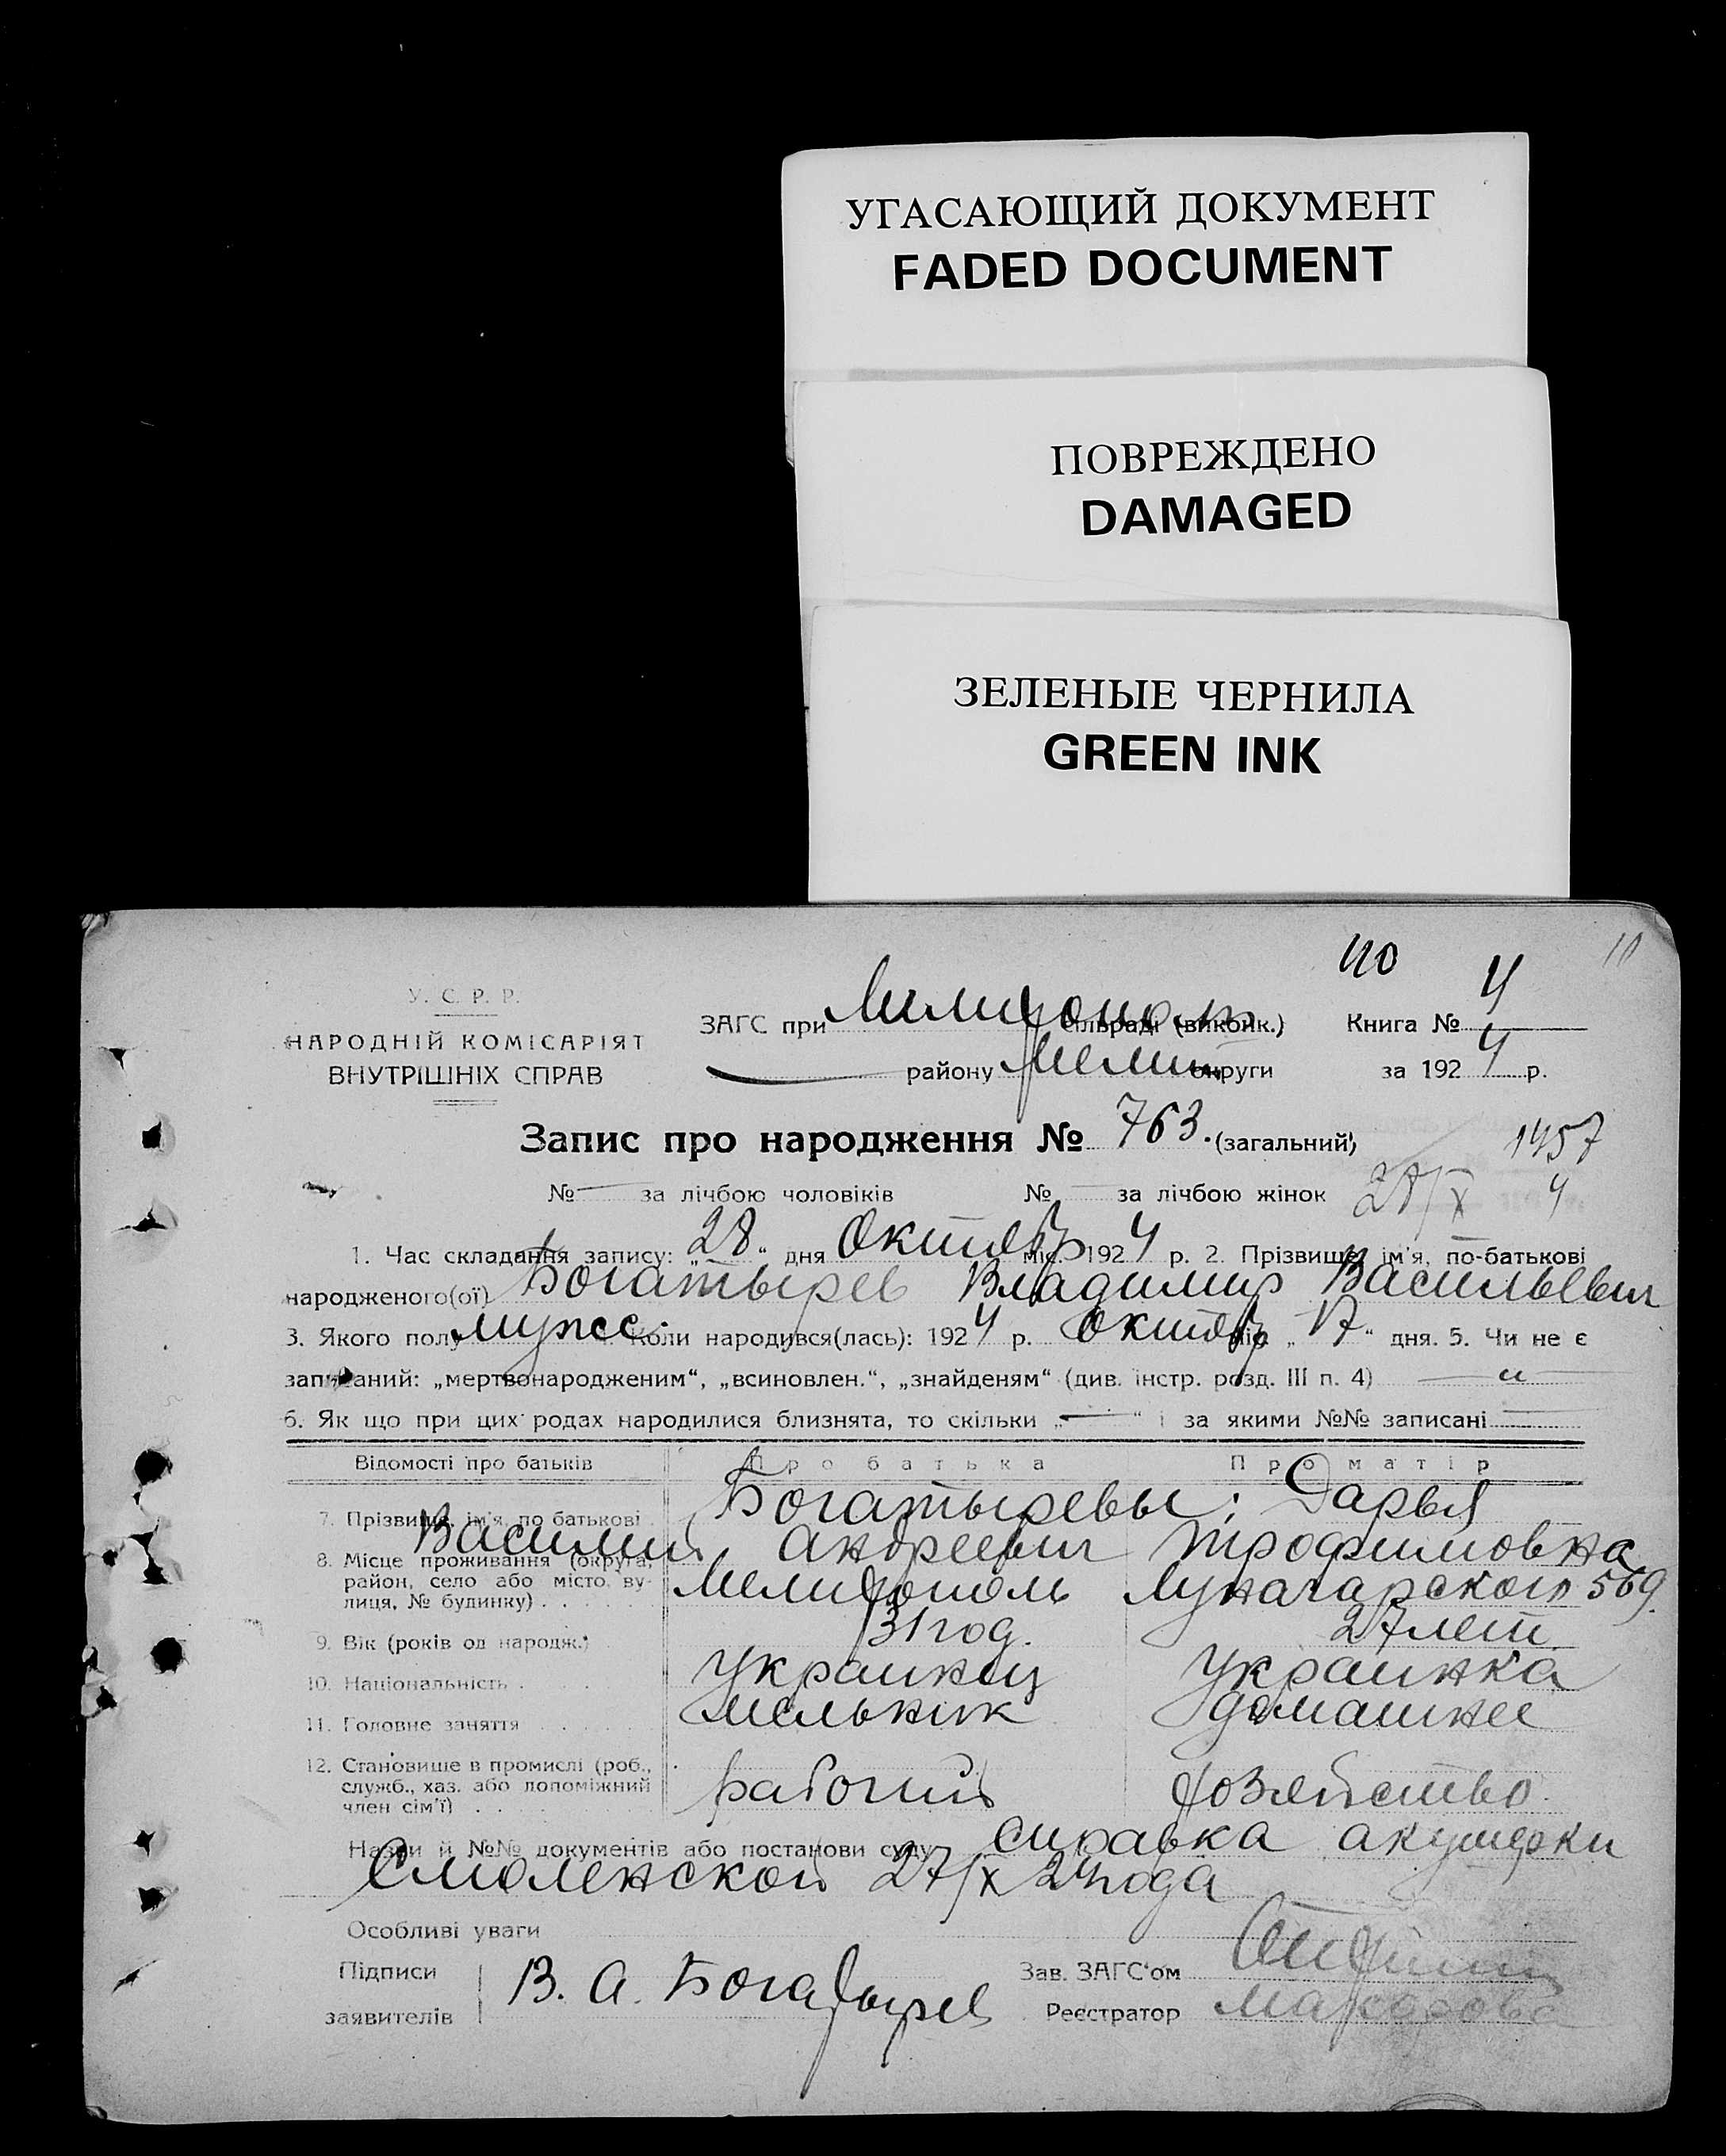 УГАСАЮЩИЙ ДОКУМЕНТ
FADED DOCUMENT
ПОВРЕЖДЕНО
DAMAGED
ЗЕЛЕНЫЕ ЧЕРНИЛА
GREEN INK
10
У. С. Р. Р.
НАРОДНІЙ КОМІСАРІЯТ
ВНУТРІШНІХ СПРАВ
ЗАГС при Мелитополь сільраді (виконк.) Книга № 4
району Мелит округи за 1924 р.
Запис про народження № 763. (загальний)
1457
4
№ — за лічбою чоловіків № — за лічбою жінок 28/X
1. Час складання запису: „28“ дня Октябр міс. 1924 р. 2. Прізвище, ім'я, по-батькові
народженого(ої) Богатырев Владимир Васильевич
3. Якого полу мужс. 4. Коли народився(лась): 1924 р. Октябр міс. „17“ дня. 5. Чи не є
записаний: „мертвонародженим“, „всиновлен.“, „знайденям“ (див. інстр. розд. III п. 4) —
6. Як що при цих родах народилися близнята, то скільки „—“ і за якими №№ записані —
Відомості про батьків Про батька Про матір
7. Прізвище, ім'я, по батькові Богатыревы: Дарья
Василий Андреевич Трофимовна
8. Місце проживання (округа, район, село або місто, ву-
лиця, № будинку) Мелитополь Луначарского 569
9. Вік (років од народж.) 31 год. 27 лет
10. Національність Украинец Украинка
11. Головне заняття мельник домашнее
12. Становище в промислі (роб.,
служб., хаз. або допоміжний
член сім'ї) рабочий хозяйство
Назви й №№ документів або постанови суду справка акушерки
Смоленской 27/X 24 года
Особливі уваги
Підписи
заявителів В. А. Богатырев
Зав. ЗАГС'ом
Реєстратор